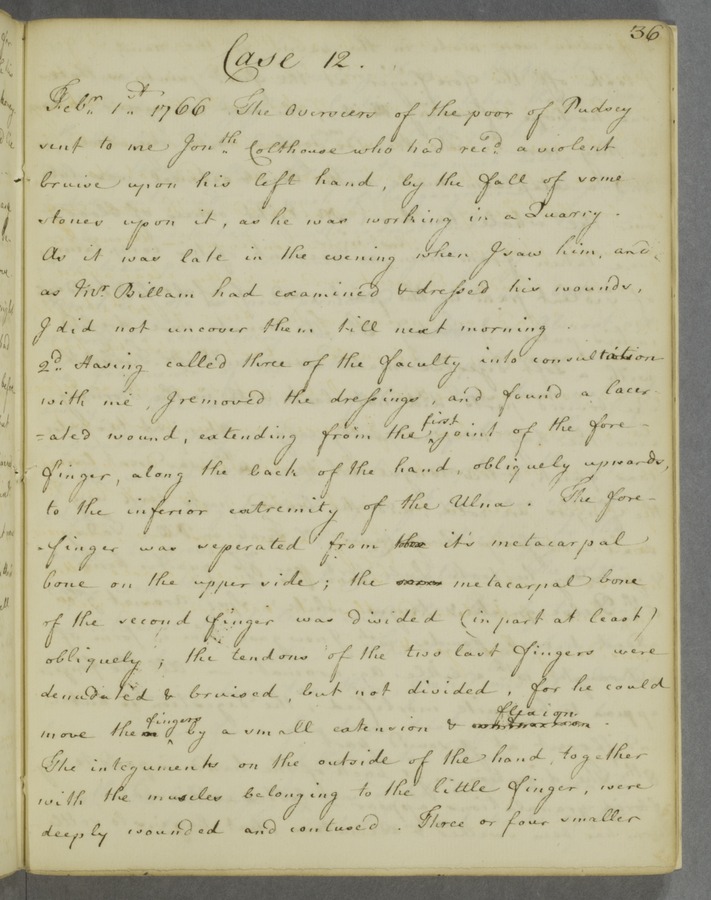 36
Case 12.
Febr. 1st 1766 The Overseers of the poor of Pudsey
sent to me Jonth. Colthouse who had recd. a violent
bruise upon his left hand, by the fall of some
stones upon it, as he was working in a Quarry.
As it was late in the evening when I saw him, and
as Mr. Billam had examined & dressed his wounds,
I did not uncover them till next morning.
2d. Having called three of the faculty into consultation
with me, I removed the dressings, and found a lacer-
=ated wound, extending from the first joint of the fore-
finger, along the back of the hand, obliquely upwards,
to the inferior extremity of the Ulna. The fore-
-finger was seperated from it's metacarpal
bone on the upper side; the metacarpal bone
of the second finger was divided (in part at least)
obliquely; the tendons of the two last fingers were
denudated & bruised, but not divided, for he could
move the fingers by a small extension & flexion.
The integuments on the outside of the hand, together
with the muscles belonging to the little finger, were
deeply wounded and contused. Three or four smaller